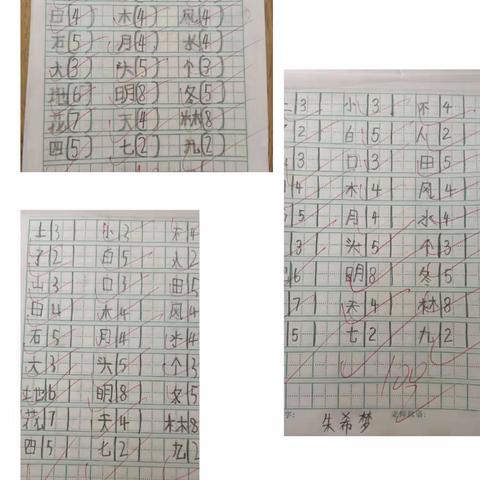 白(4) 木(4) 风(4)
石(5) 月(4) 水(4)
大(3) 头(5) 个(3)
地(6) 明(8) 冬(5)
花(7) 天(4) 林(8)
四(5) 七(2) 九(2)
3 小|3 不|4
2 白|5 人|2
3 口|3 田|5
4 木|4 风|4
5 月|4 水|4
3 头|5 个|3
6 明|8 冬|5
7 天|4 林|8
5 七|2 九|2
100
朱希梦
上|3 小|3 不|4
了|2 白|5 人|2
山|3 口|3 田|5
日|4 木|4 风|4
石|5 月|4 水|4
大|3 头|5 个|3
地|6 明|8 冬|5
花|7 天|4 林|8
四|5 七|2 九|2